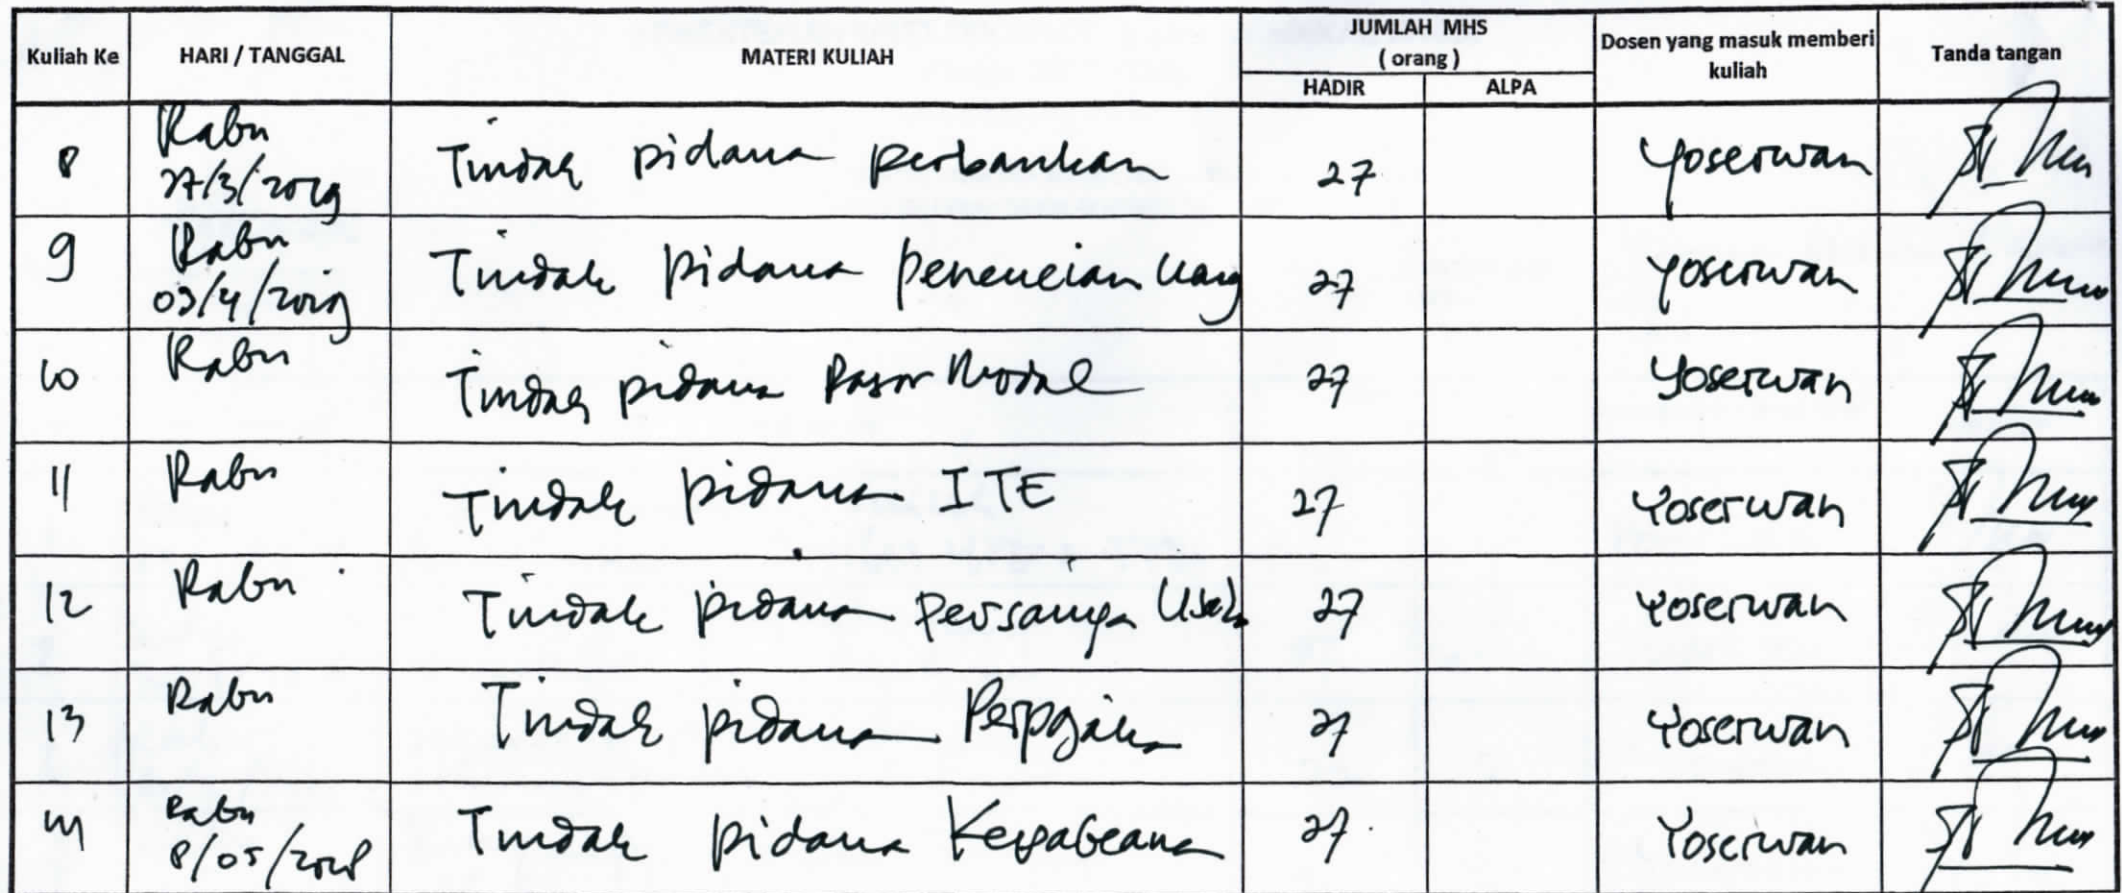 Kuliah Ke HARI / TANGGAL MATERI KULIAH JUMLAH MHS ( orang ) Dosen yang masuk memberi kuliah Tanda tangan
HADIR ALPA
8 Rabu 27/3/2019 Tindak pidana perbankan 27 Yoserwan
9 Rabu 03/4/2019 Tindak pidana pencucian uang 27 Yoserwan
10 Rabu Tindak pidana Pasar Modal 27 Yoserwan
11 Rabu Tindak pidana ITE 27 Yoserwan
12 Rabu Tindak pidana persainga Usaha 27 Yoserwan
13 Rabu Tindak pidana Perpajaka 27 Yoserwan
14 Rabu 8/05/2018 Tindak pidana Kepabeana 27 Yoserwan